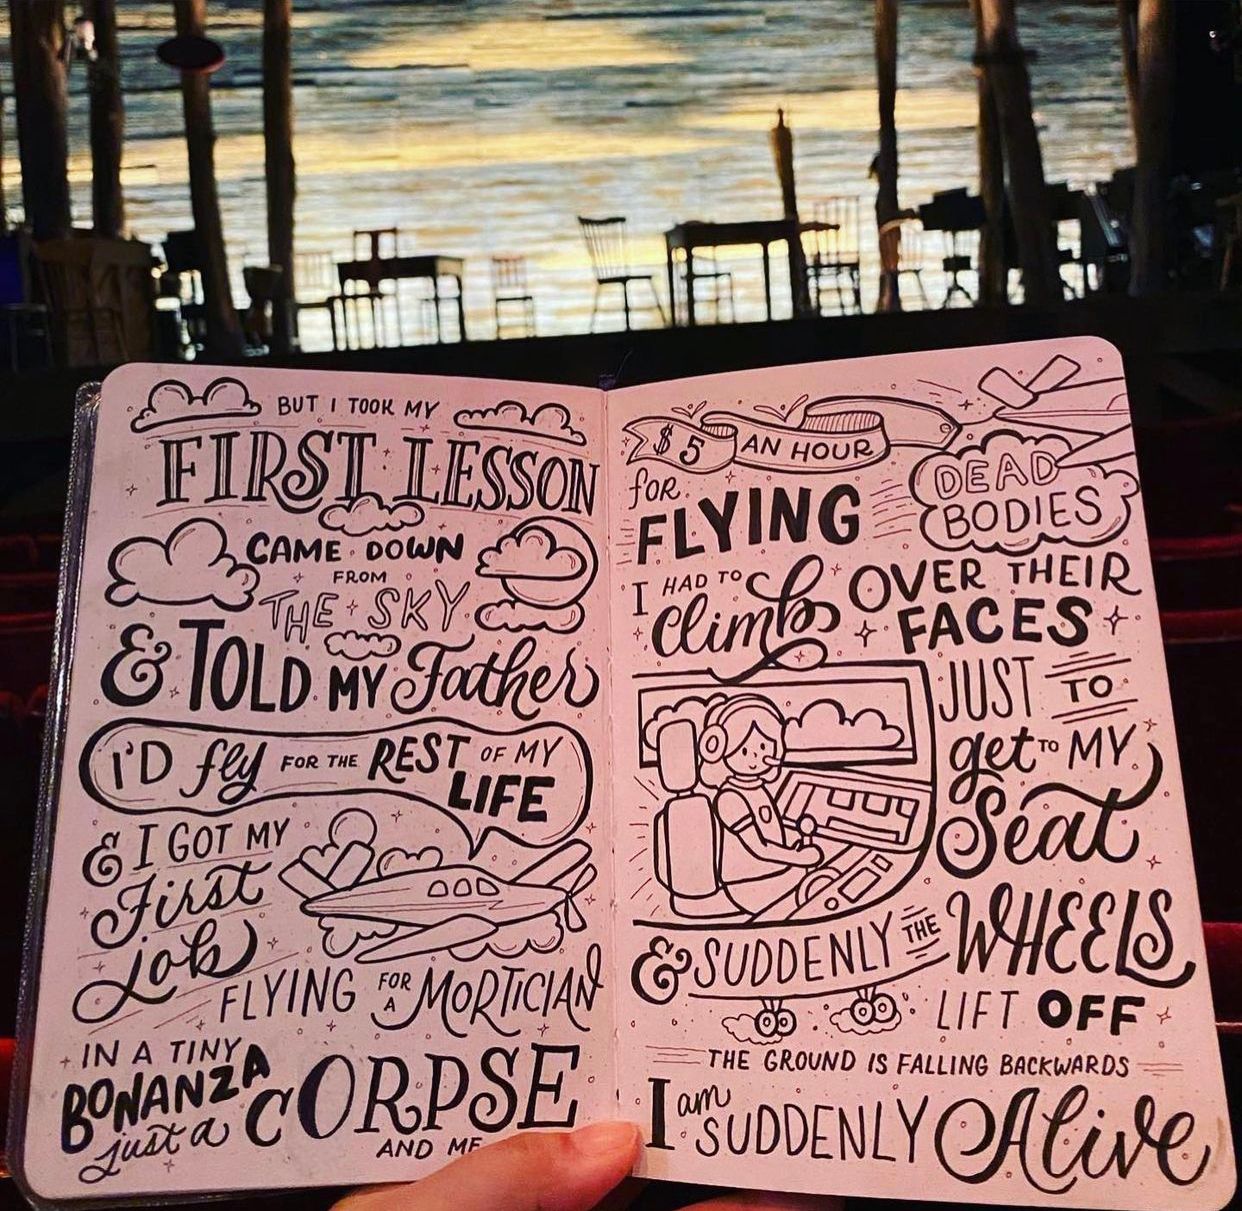 BUT I TOOK MY
FIRST LESSON
CAME DOWN
FROM
THE SKY
& TOLD MY Father
I'D fly FOR THE REST OF MY
LIFE
& I GOT MY
First
job
FLYING FOR A MORTICIAN
IN A TINY
BONANZA
just a CORPSE
AND ME
$5 AN HOUR
for
FLYING
DEAD
BODIES
I HAD TO
climb OVER THEIR
FACES
JUST TO
get TO MY
Seat
& SUDDENLY THE WHEELS
LIFT OFF
THE GROUND IS FALLING BACKWARDS
I am SUDDENLY Alive